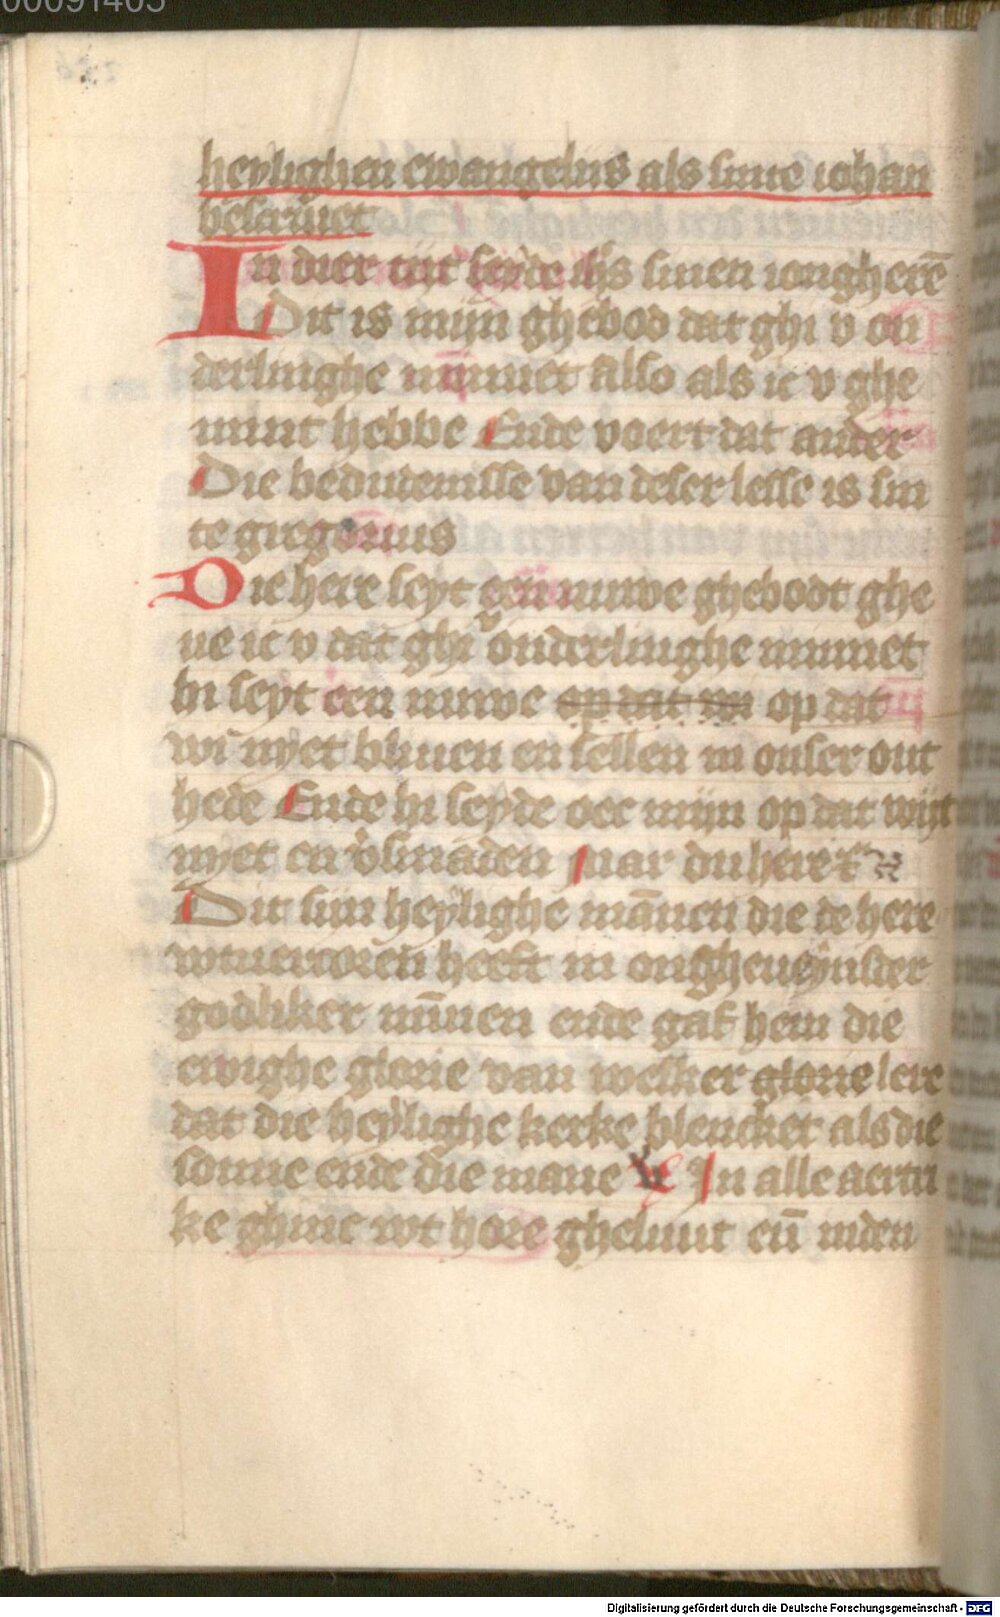 00091405
heylighen ewangelijs als sinte iohan
bescriuet
In dier tijt seyde ihs sinen iongherē
Dit is mijn ghebod dat ghi v on
derlinghe minnet Also als ic v ghe
mint hebbe Ende voert dat ander
Die bedudenisse van deser lesse is sin
te gregorius
Die here seyt een nuwe ghebodt ghe
ue ic v dat ghi onderlinghe minnet
hi seyt een nuwe op dat wi op dat
wi nyet bliuen en sellen in onser out
hede Ende hi seyde oec mijn op dat wijt
nyet en v̄smaden mar du here
Dit sijn heylighe mānen die de here
wtuercoren heeft in ongheueynsder
godliker mīnen ende gaf hem die
ewighe glorie van welker glorie lere
dat die heylighe kerke blencket als die
sonne ende die mane In alle aertri
ke ghinc wt hore gheluut en̄ inden
Digitalisierung gefördert durch die Deutsche Forschungsgemeinschaft - DFG